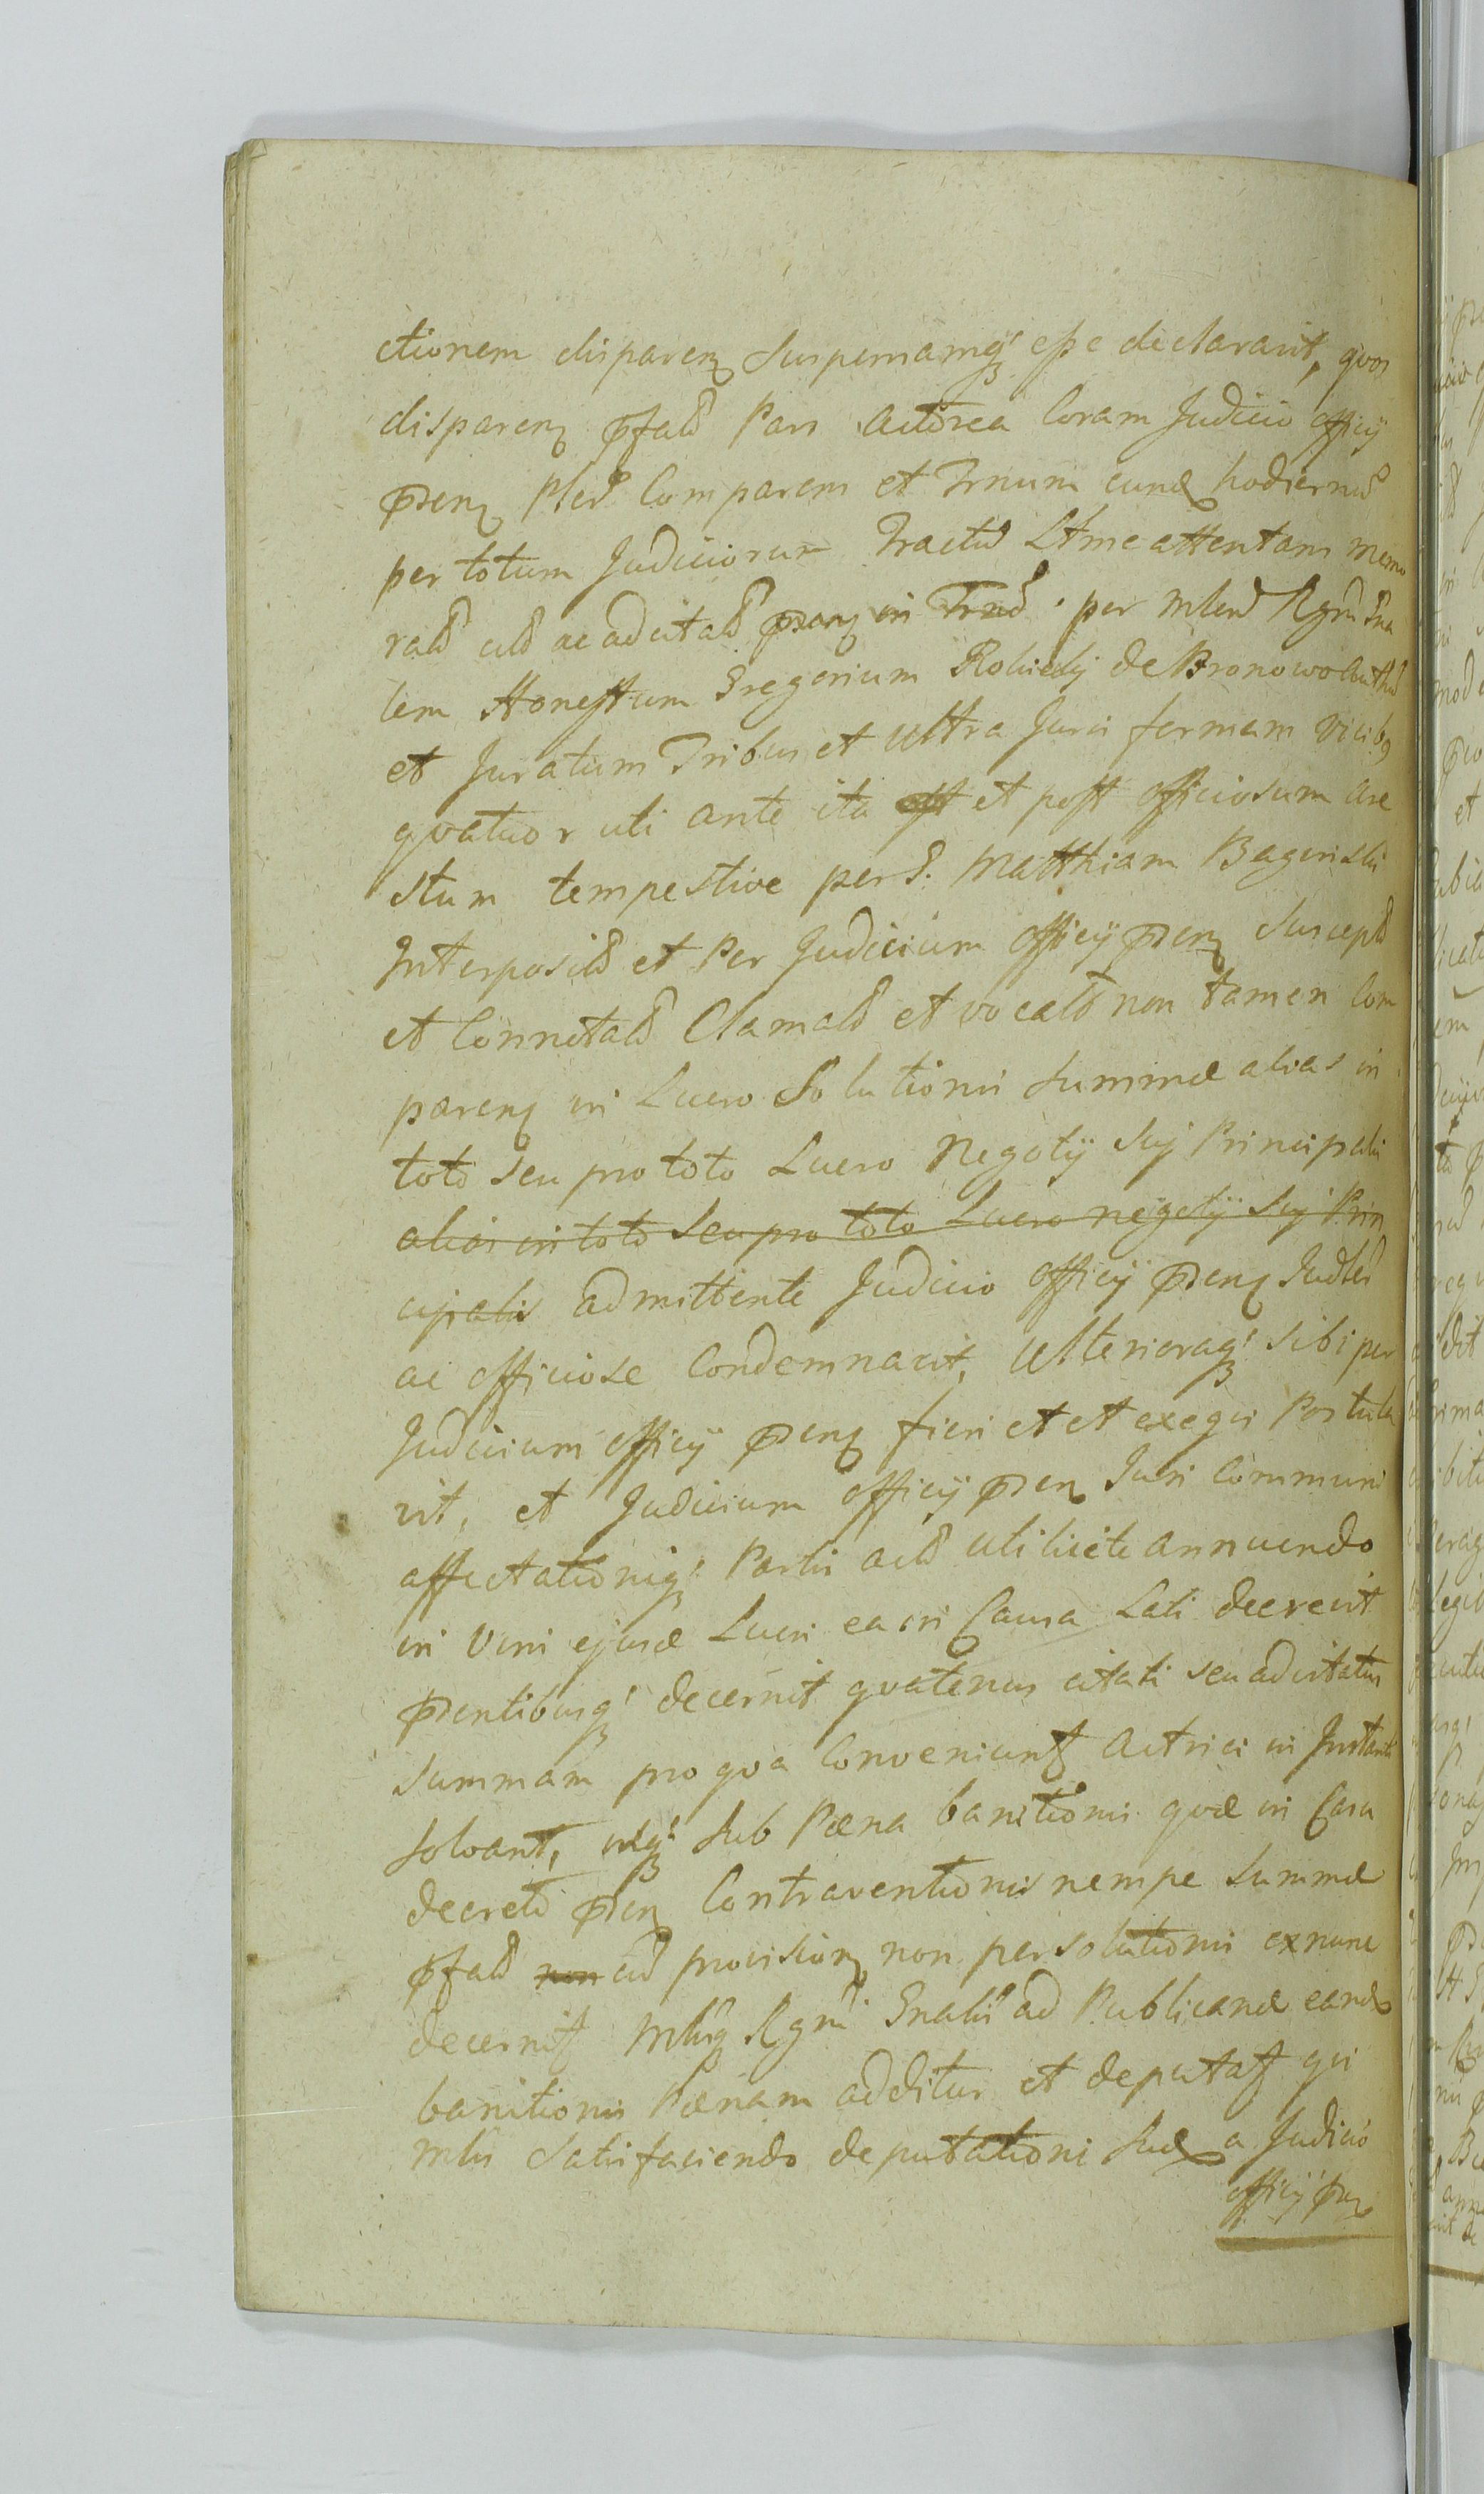 ctionem disparen supernamq esse declaravit, qvos
disparen pfatd Pars Actorea Coram Judicio officij
psen Pled Comparem et Trnum eund hodiernũ
per totum Judiciorum Tractũ Ltme attentans memo
ratd citd ac adcitatd in Trnõ per mlend Rgni Gna
lem Honestum Gregorium de Bronowo
et Juratum Tribus et Ultra Juris formam vicibq
qvatuor uti ante ita et post officiosum are
stum tempestive per G. Matthiam Baginski
Interposild et Per Judicium officij psen suscepd
et Connotatd Clamatd et vocatd non tamen Com
paren in Lucro Solutionis summæ alias in
toto seu pro toto Lucro Negotij suj Principalis
alias in toto seu pro toto Lucro negotij suj Prin
cipalis admittente Judicio officij psen Judled
ac officiose Condemnavit, Ulterioraq sibi per
Judicium officij psen fieri et et exegi Postula
vit, et Judicium officij psen Juri Communi
affectationiq Partis actd uti licite annuendo
in Vim ejusd Lucri ea in Causa Lati decrevit
psentibusq decernit qvatenus citati seu adcitatus
summam pro qva Conveniunt Actrici in Instanti
solvant, idq sub Pæna banitionis qvæ in Casu
decreto psen Contraventionis nempe summæ
pfatd non cũ provision non persolutionis exnunc
decernit Mlisq Rgni Gnalis ad Publicand eand
banitionis Pænam additur et deputat qvi
Mlis satisfaciendo deputationi suæ a Judicio
officij psen